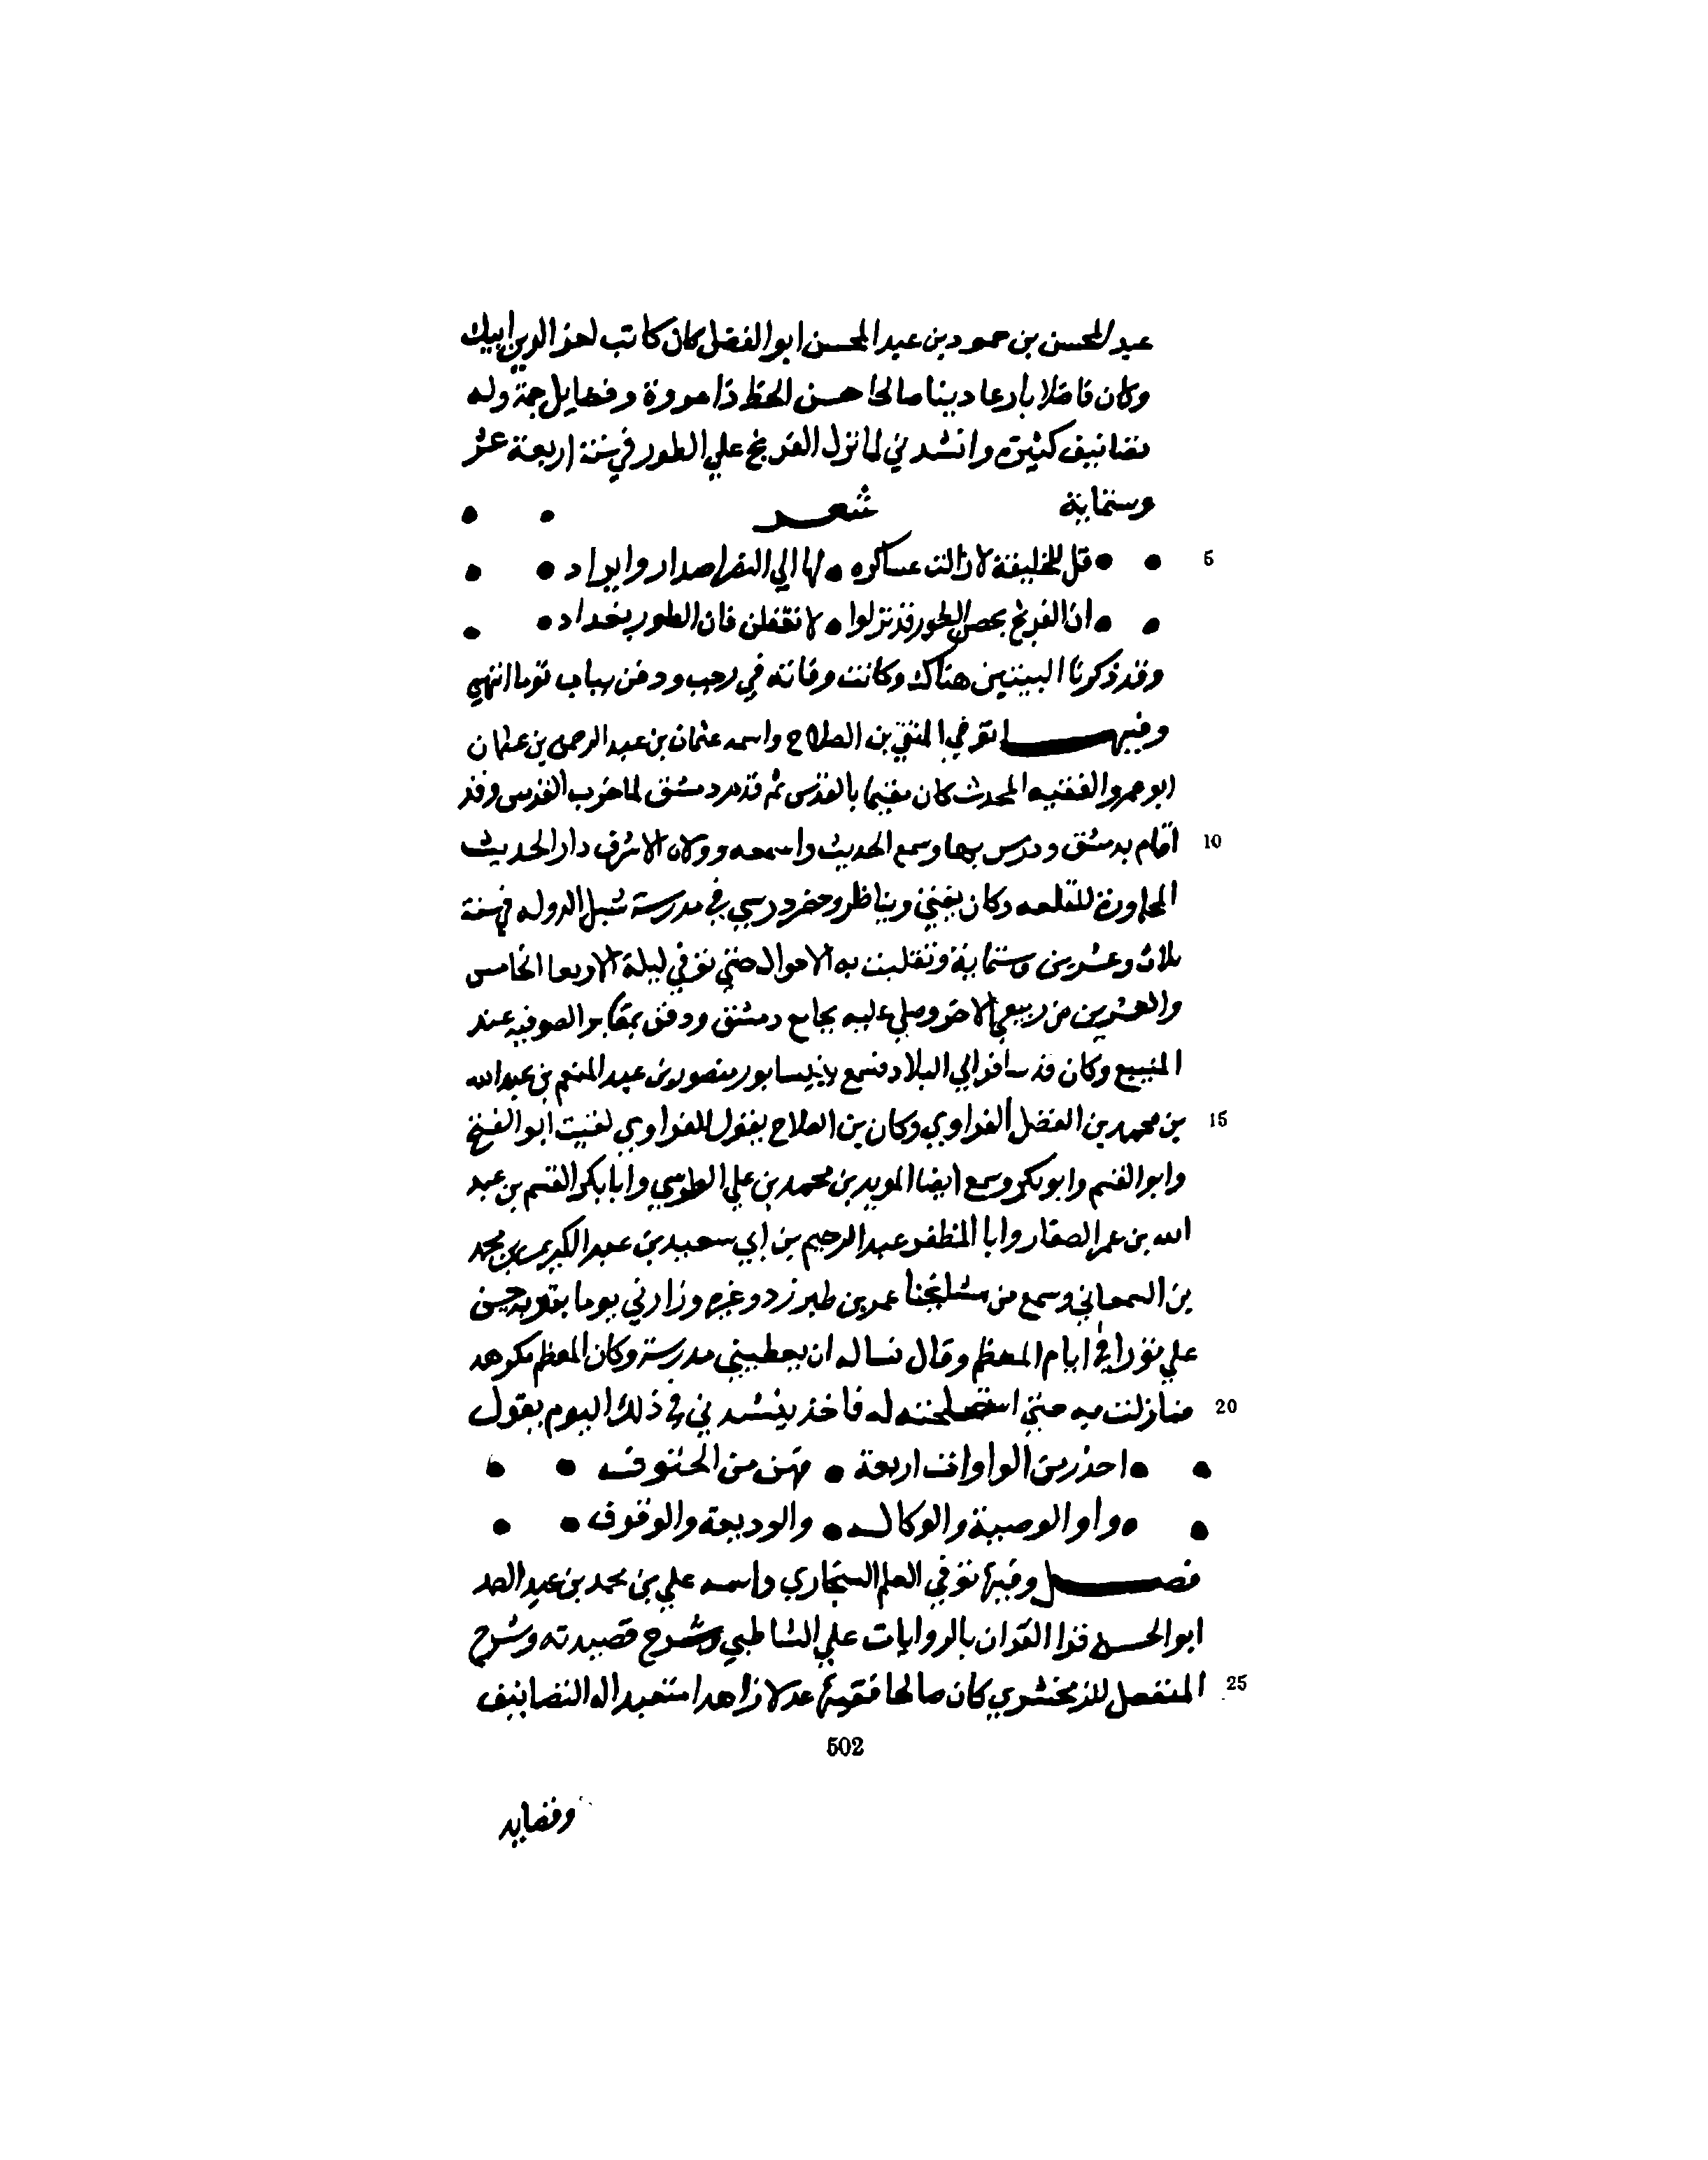 عبد المحسن بن حمود بن عبد المحسن ابو الفضل كان كاتب لعز الدين ايبك
وكان فاضلا بارعا دينا صالحا حسن الخط ذا مروة وفضايل جمة وله
تصانيف كثيرة وانشدني لما نزل الفرنج علي الطور في سنة اربعة عشر
وستماية شعر
5 قل للخليفة لا زالت عساكره • لها الي النصر اصدار وايراد
ان الفرنج بحصن الطور قد نزلوا • لا تغفلن فان الطور بغداد
وقد ذكرنا البيتين هناك وكانت وفاته في رجب ودفن بباب توما انتهي
وفيها توفي التقي بن الصلاح واسمه عثمان بن عبد الرحمن بن عثمان
ابو عمرو الفقيه المحدث كان مقيما بالقدس ثم قدم دمشق لما خرب القدس وقد
10 اقام بدمشق ودرس بها وسمع الحديث واسمعه وولاه الاشرف دار الحديث
المجاورة للقلعه وكان يفتي ويناظر وحضر درسي في مدرسة شبل الدوله في سنة
ثلاث وعشرين وستماية وتقلبت به الاحوال حتي توفي ليلة الاربعا الخامس
والعشرين من ربيع الاخر وصلي عليه بجامع دمشق ودفن بمقابر الصوفيه عند
المنيبع وكان قد سافر الي البلاد فسمع بنيسابور منصور بن عبد المنعم بن عبد الله
15 بن محمد بن الفضل الفراوي وكان بن الصلاح يقول للفراوي لقيت ابو الفتح
وابو القسم وابو بكر وسمع ايضا المويد بن محمد بن علي الطوسي وابا بكر القسم بن عبد
الله بن عمر الصفار وابا المظفر عبد الرحيم بن ابي سعيد بن عبد الكريم بن محمد
بن السمعاني وسمع من مشايخنا عمر بن طبرزد وغيره وزارني يوما بتربة حسن
علي ثورا في ايام المعظم وقال نساله ان يعطيني مدرسة وكان المعظم يكرهه
20 فما زلت به حتي استصلحته له فاخذ ينشدني في ذلك اليوم يقول
احذر من الواوات اربعة • فهن من الحتوف
واو الوصية والوكاله • والوديعة والوقوف
فصل وفيها توفي العلم السخاري واسمه علي بن محمد بن عبد الصمد
ابو الحسن قرا القران بالروايات علي الشاطبي وشرح قصيدته وشرح
25 المفصل للزمخشري كان صالحا فقيها عدلا زاهدا متعبدا له التصانيف
502
وقصايد